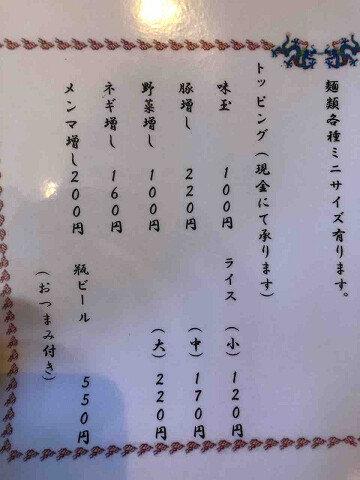 麺類各種ミニサイズ有ります。
トッピング(現金にて承ります)
味玉 100円
豚増し 220円
野菜増し 100円
ネギ増し 160円
メンマ増し200円
ライス (小) 120円
(中) 170円
(大) 220円
瓶ビール 550円
(おつまみ付き)